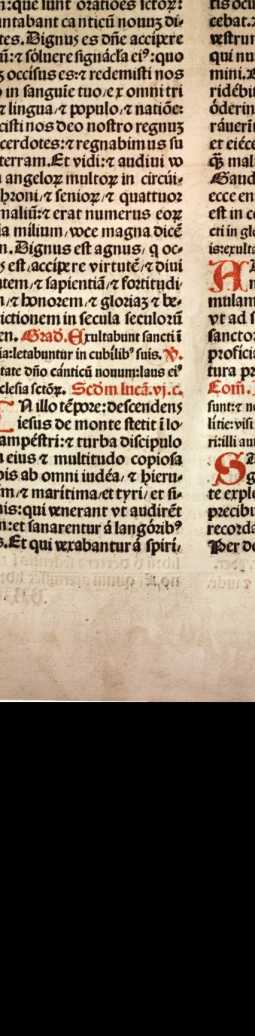 n: que sunt orationes sctoꝝ:
ntabant cantícū nouuʒ di-
tes. Dignus es dñe accipere
ū: ⁊ sóluere signácla ei⁹: quo
ʒ occísus es: ⁊ redemísti nos
o in sanguíe tuo, ex omni tri
⁊ lingua, ⁊ pópulo, ⁊ natiōe:
cisti nos deo nostro regnuʒ
cerdótes: ⁊ regnábimus su
terram. Et vidi: ⁊ audíui vo
angeloꝝ multoꝝ in circúi-
hroni, ⁊ senioꝝ, ⁊ quáttuor
malíū: ⁊ erat númerus eoꝝ
ia mílium, voce magna dicē
n. Dignus est agnus, q oc-
ʒ est, accípere virtutē, ⁊ diui
utem, ⁊ sapiéntiā, ⁊ fortitúdi
n, ⁊ honórem, ⁊ glóriaʒ ⁊ be-
ictiónem in sécula seculorū
en. Grad. Exultabunt sancti ī
ia: letabuntur in cubílib⁹ suis. ℣.
tate dño cánticū nouum: laus ei⁹
clésia sctōꝝ. Scdm lucā. vj. c.
N illo tēpore: descendens
iesus de monte stetit ī lo-
ampéstri: ⁊ turba discipulo
eius ⁊ multitúdo copiósa
bis ab omni iudéa, ⁊ hieru-
m, ⁊ marítima, et tyri, et si-
nis: qui vénerant vt audírēt
n: et sanaréntur á langórib⁹
s. Et qui vexabántur á spíri-
tis ocu
cebat.
vestrum
qui nu
mini. B
ridébit
óderin
ráuerin
et eiéce
q̃ʒ mal
Gaud
ecce en
est in c
cti in glo
is: exulta
A
n
mulam
vt ad s
sancto
profici
tura pr
Com.
sunt: ⁊ n
lítie: visi
ri: illi aut
S
g
te explé
précibu
recorda
Per do